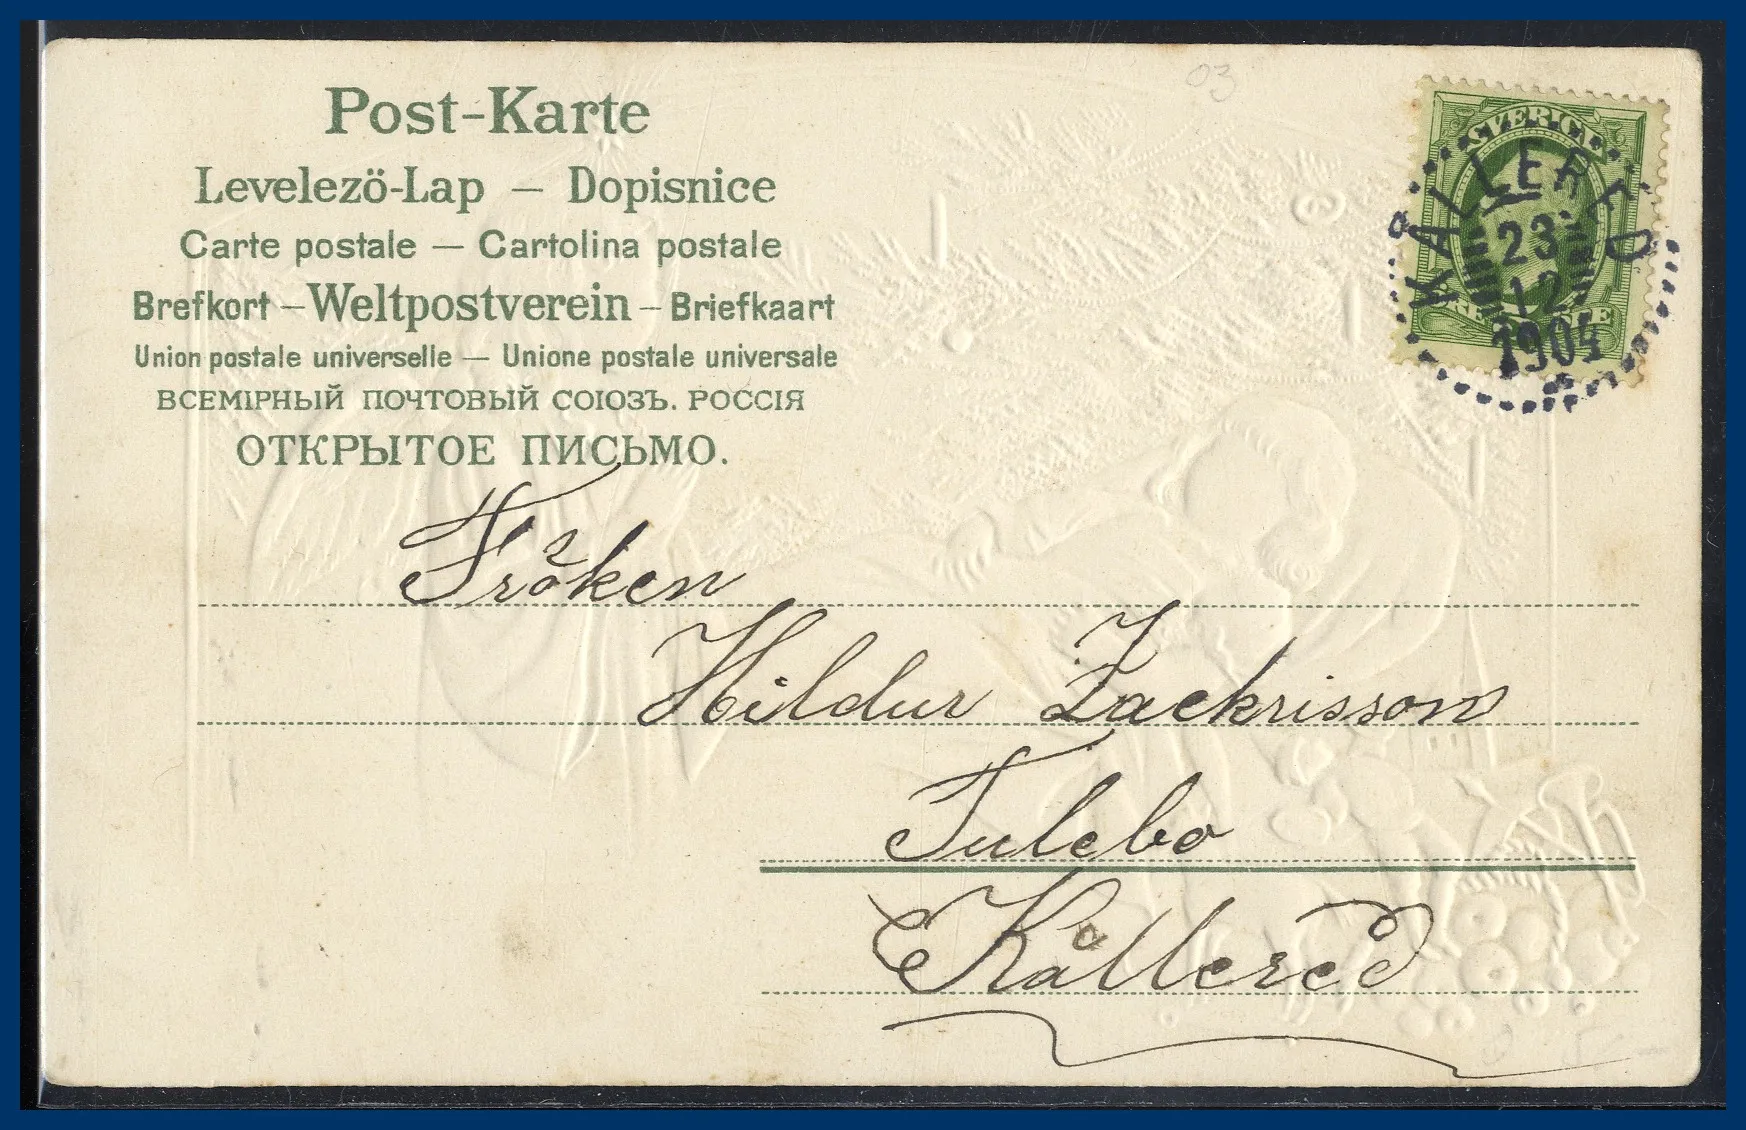 03
Post-Karte
Levelezö-Lap — Dopisnice
Carte postale — Cartolina postale
Brefkort – Weltpostverein – Briefkaart
Union postale universelle — Unione postale universale
ВСЕМІРНЫЙ ПОЧТОВЫЙ СОЮЗЪ. РОССІЯ
ОТКРЫТОЕ ПИСЬМО.
SVERIGE
KÅLLERED
23
12
1904
Fröken
Hildur Zackrisson
Tulebo
Kållered